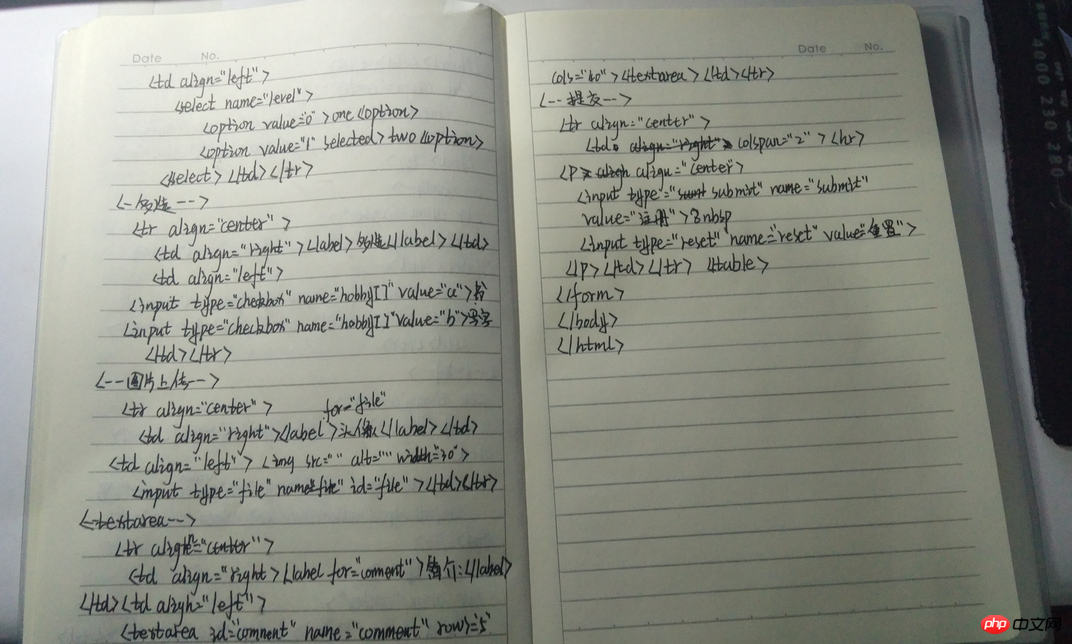 Date No.
<td align="left">
<select name="level">
<option value="0">one<option>
<option value="1" selected>two<option>
<select></td></tr>
<--->
<tr align="center">
<td align="right"><label></label></td>
<td align="left">
<input type="checkbox" name="hobby[]" value="a">
<input type="checkbox" name="hobby[]" value="b">写字
</td></tr>
<--图片上传-->
<tr align="center">
for="file"
<td align="right"><label>头像</label></td>
<td align="left"> <img src="" alt="" width="30">
<input type="file" name="file" id="file"></td></tr>
<-textarea-->
<tr align="center">
<td align="right><label for="comment">简介:</label>
</td><td align="left">
<textarea id="comment" name="comment" rows="5"
Date No.
cols="40"></textarea></td></tr>
<--提交-->
<tr align="center">
<td align="right" colspan="2"><hr>
<p align="center>
<input type="submit" name="submit"
value="注册">&nbsp
<input type="reset" name="reset" value="重置">
</p></td></tr> </table>
</form>
</body>
</html>
4000 230 280
php 中文网